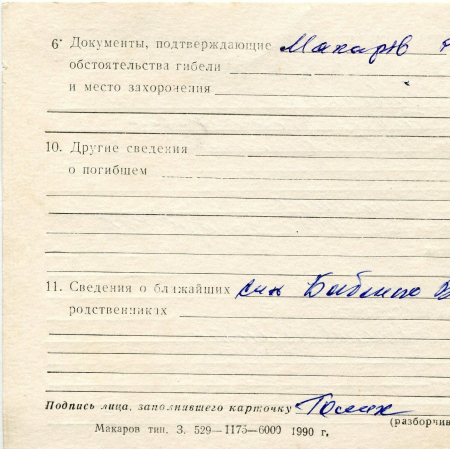 6. Документы, подтверждающие Макарів
обстоятельства гибели
и место захоронения
10. Другие сведения
о погибшем
11. Сведения о ближайших син
родственниках
Подпись лица, заполнившего карточку
(разборчив
Макаров тип. З. 529—1175—6000 1990 г.